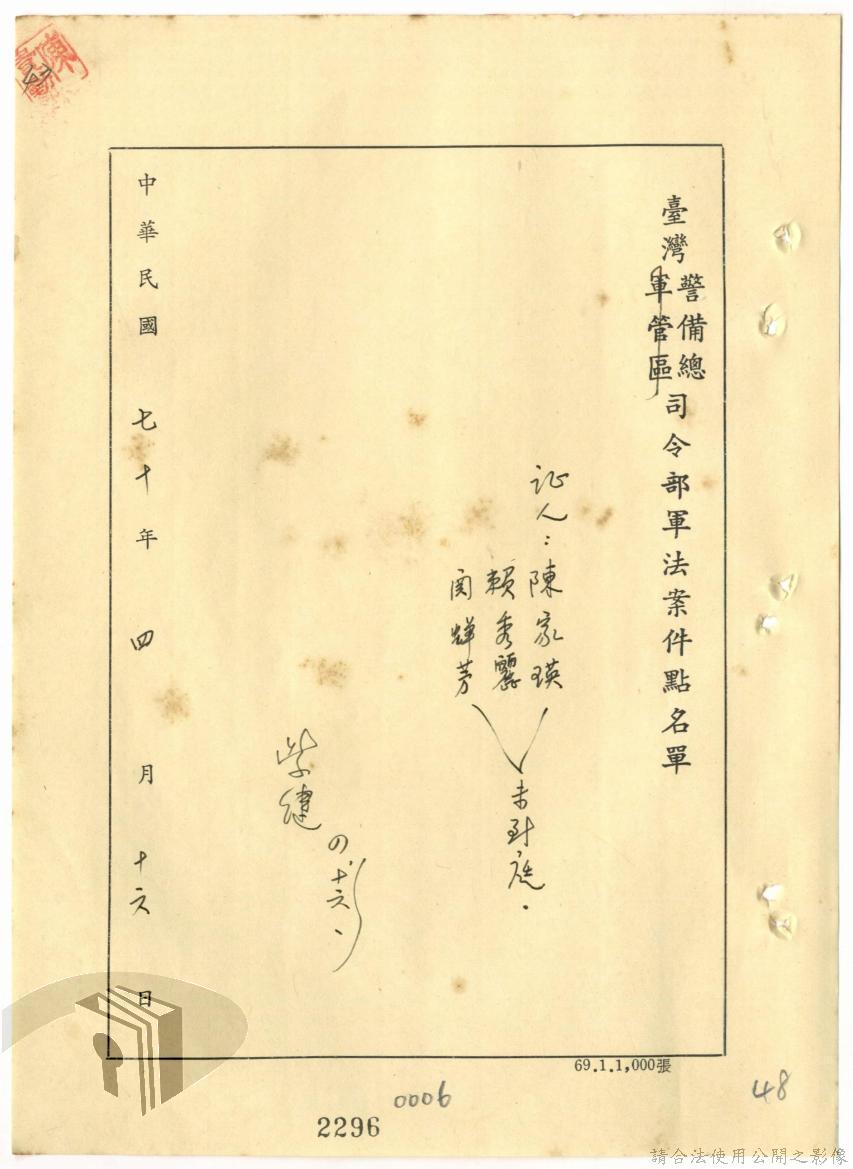 臺灣警備總軍管區司令部軍法案件點名單
证人：陳家瑛
賴秀麗
関輝芳
未到庭．
四．十六、
中華民國七十年四月十六日
69.1.1,000張
0006
2296
48
請合法使用公開之影像